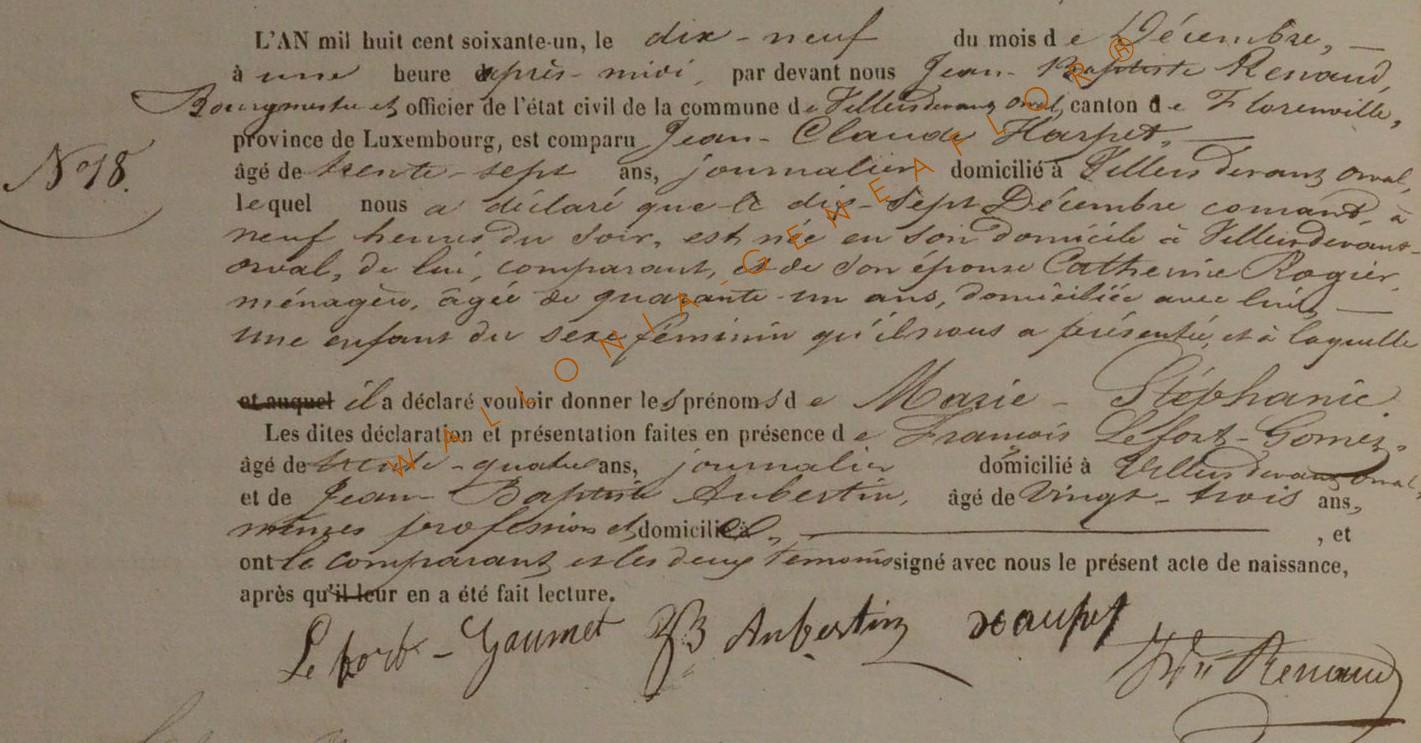 L'AN mil huit cent soixante-un, le dix-neuf du mois de Décembre,
à une heure après-midi, par devant nous Jean-Baptiste Renaud,
Bourgmestre et officier de l'état civil de la commune de Villersdevant orval, canton de Florenville,
province de Luxembourg, est comparu Jean-Claude Harpet,
N° 18.
âgé de trente-sept ans, journalier domicilié à Villers devant orval,
lequel nous a déclaré que le dix-sept Décembre courant, à
neuf heures du soir, est née en son domicile à Villersdevant-
orval, de lui, comparant, et de son épouse Catherine Rogier,
ménagère, âgée de quarante-un ans, domiciliée avec lui,
une enfant du sexe féminin qu'il nous a présentée, et à laquelle
et auquel il a déclaré vouloir donner les prénoms de Marie-Stéphanie.
Les dites déclaration et présentation faites en présence de François Lefort-Gomez,
âgé de trente-quatre ans, journalier domicilié à Villersdevant orval,
et de Jean-Baptiste Aubertin, âgé de vingt-trois ans,
mêmes profession et domicile, , et
ont le comparant et les deux témoins signé avec nous le présent acte de naissance,
après qu'il leur en a été fait lecture.
Lefort-Gaumet JB Aubertin Renaud
WALLONIA-GENEAFLOR®